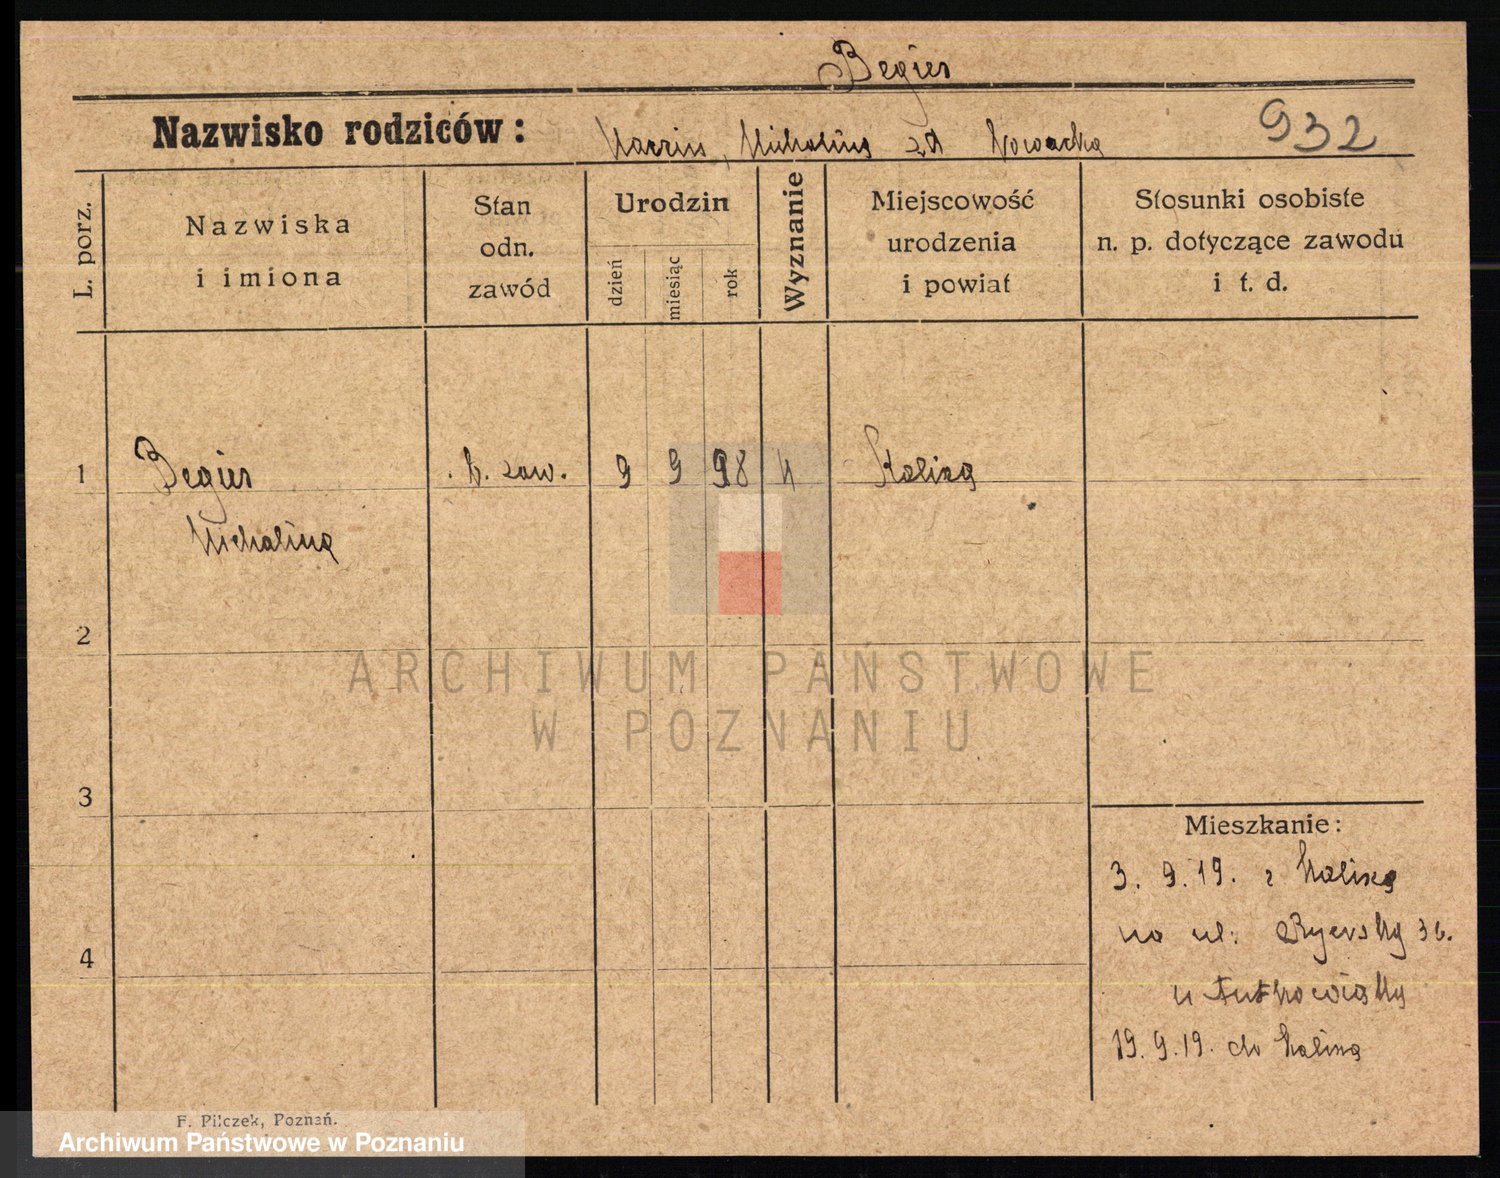 Begier
Nazwisko rodziców: Marcin, Michalina zd Nowacka 932
L. porz.
Nazwiska
i imiona
Stan
odn.
zawód
Urodzin
dzień
miesiąc
rok
Wyznanie
Miejscowość
urodzenia
i powiat
Stosunki osobiste
n. p. dotyczące zawodu
i t. d.
1 Begier b. zaw. 9 9 98 k Kalisz
Michalina
2
3
4
Mieszkanie:
3. 9. 19. z Kalisza
na ul.
u
19. 9. 19. do Kalisza
F. Pilczek, Poznań.
ARCHIWUM PAŃSTWOWE
W POZNANIU
Archiwum Państwowe w Poznaniu